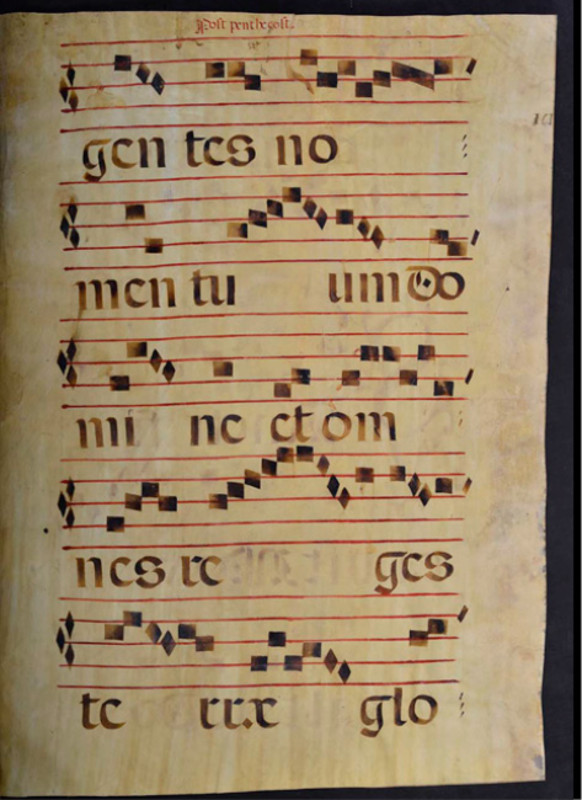 Post penthecost.
gen tes no
men tu um Do
mi ne et om
nes re ges
te rrx glo